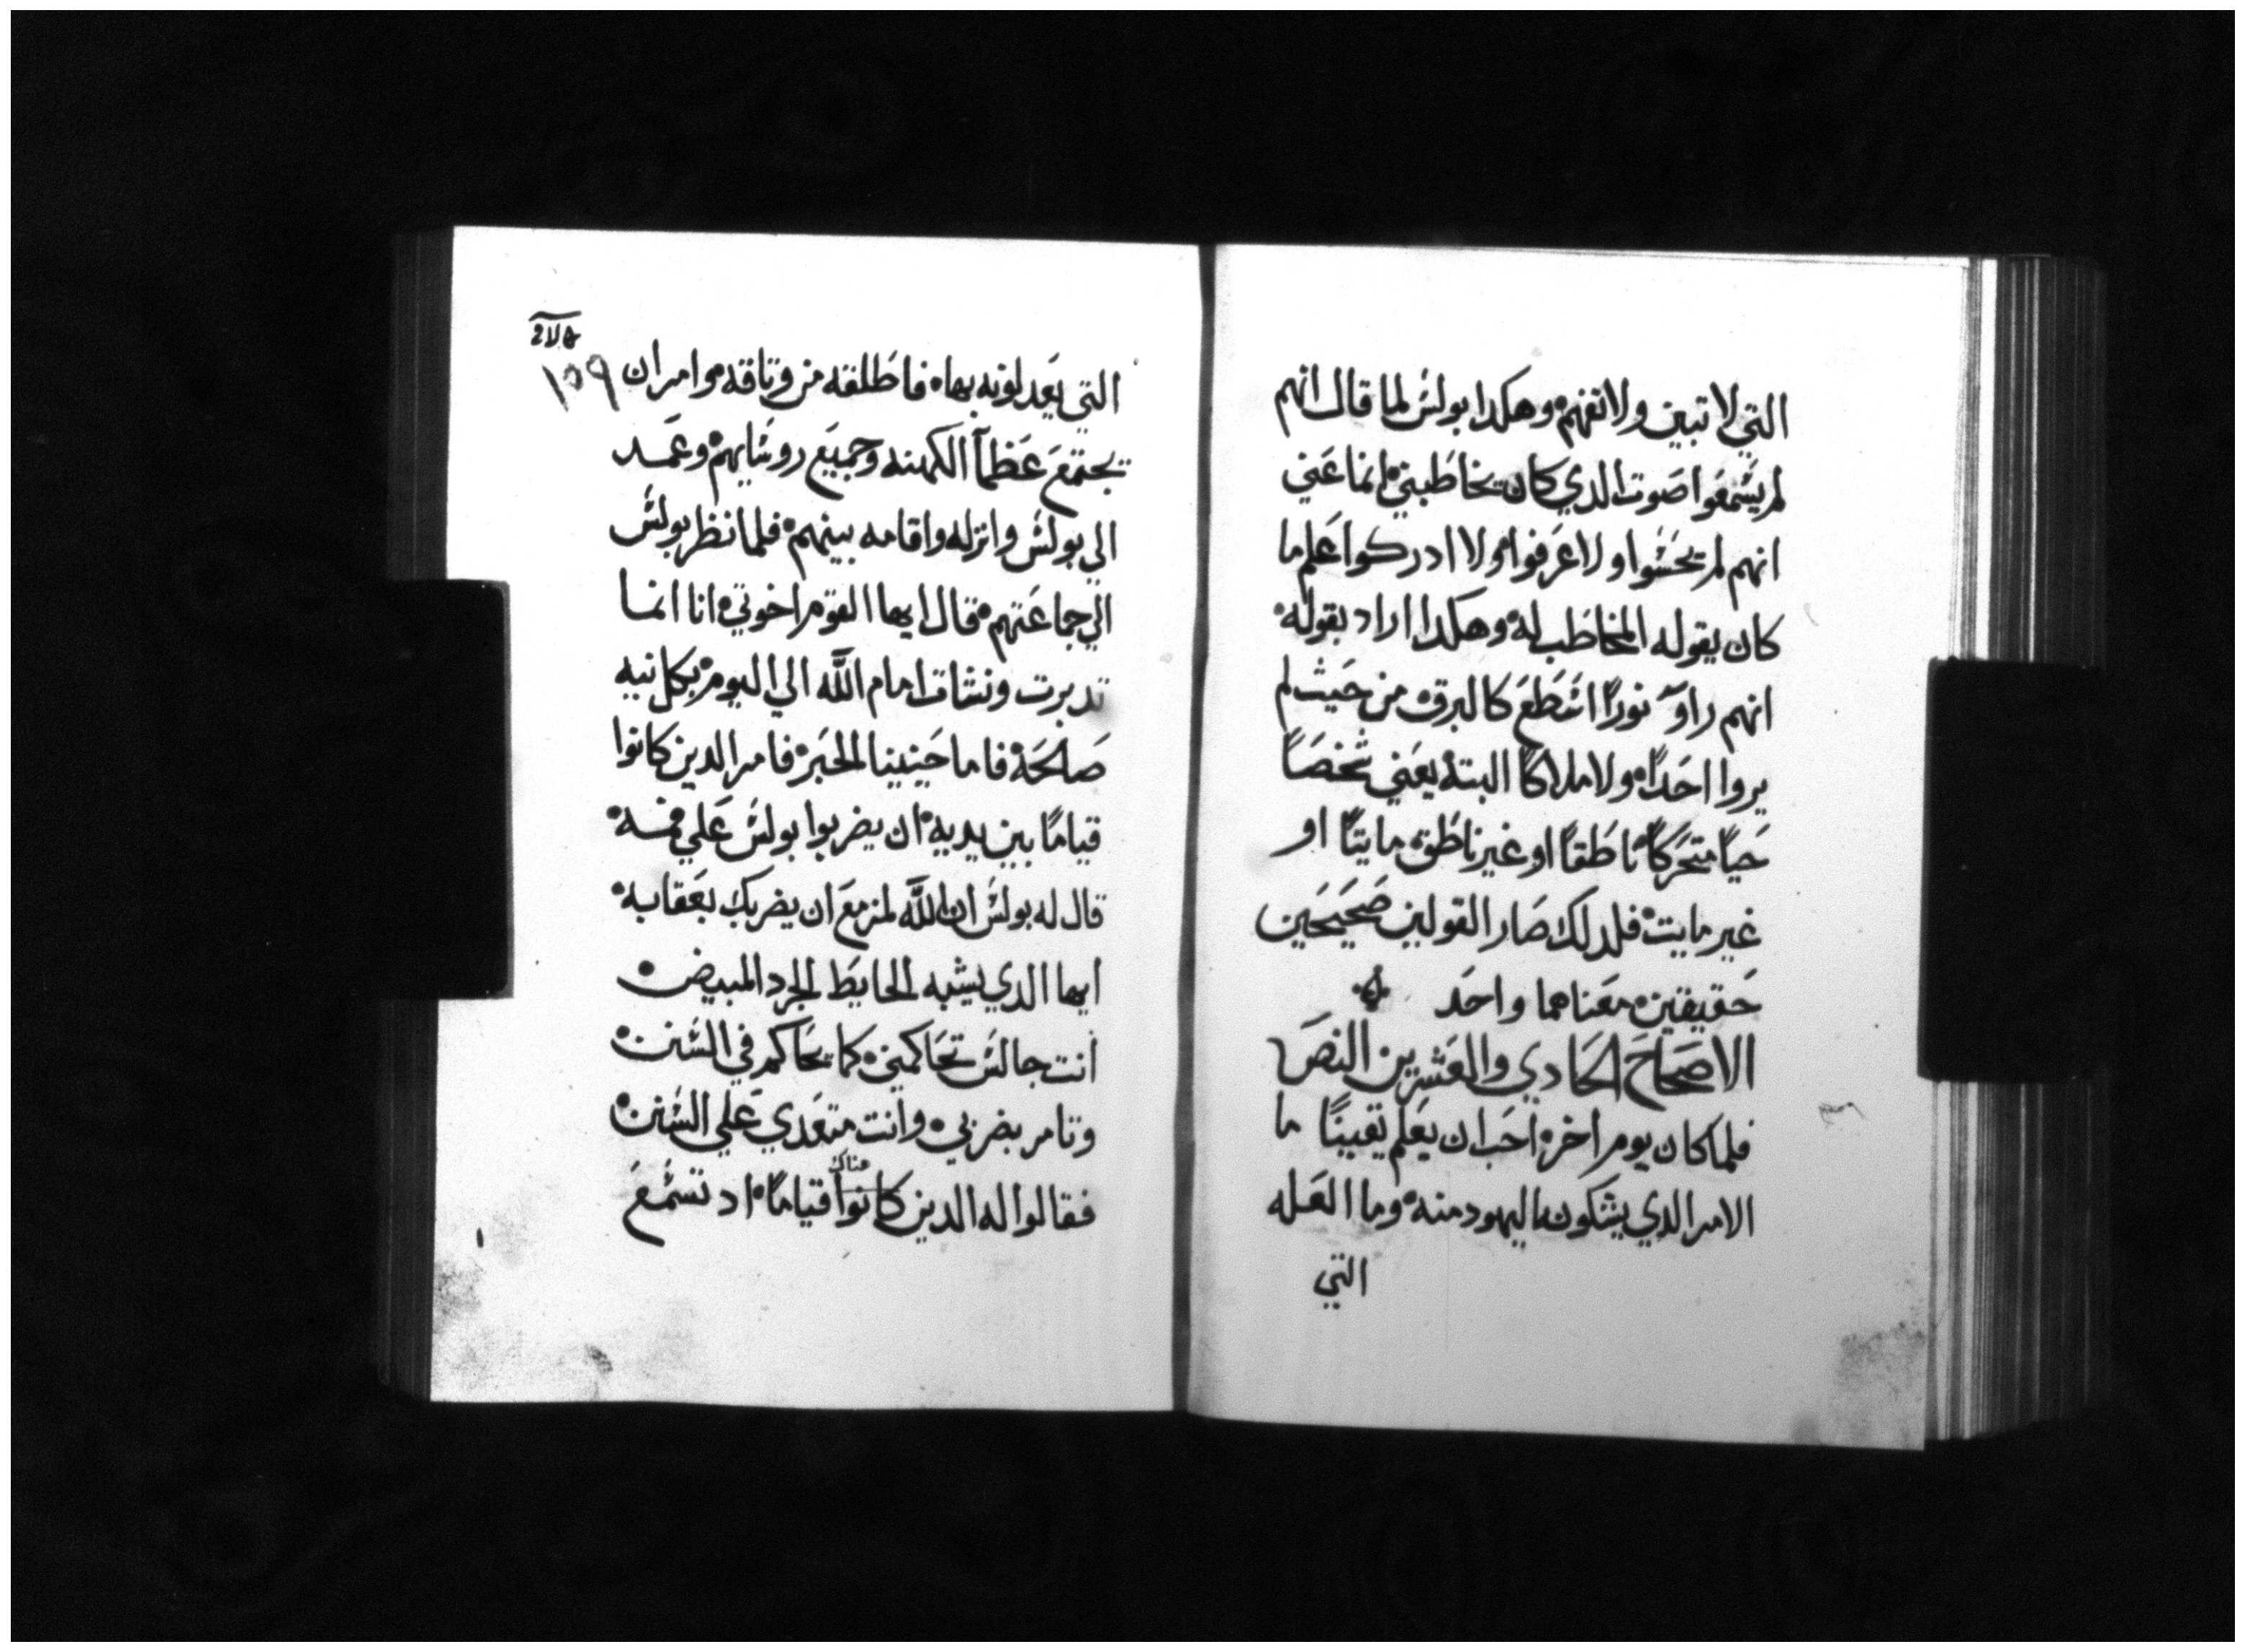 التي لا تبين ولا تفهم ه وهكدا بولس لما قال انهم
لم يسمعوا صوت الدي كان يخاطبني ه انما عني
انهم لم يحسوا ولا عرفوا ه ولا ادركوا علم ما
كان يقوله المخاطب له ه وهكدا اراد بقوله ه
انهم راوا نورًا استطع كالبرق ه من حيث لم
يروا احدًا ه ولا ملاكًا البتة يعني شخصًا
حيًا متحركًا ه ناطقًا او غير ناطق ه مايتًا او
غير مايت ه فلدلك صار القولين صحيحين
حقيقتين ه معناهما واحد
الاصحاح الحادي والعشرين النص
فلما كان يوم اخر ه احب ان يعلم يقينًا ما
الامر الدي يشكون اليهود منه ه وما العله
التي
١٥٩
التي يعدلونه بها ه فاطلقه من وتاقه ه وامر ان
يجتمع عظمآ الكهنه وجميع روسايهم ه وعمد
الي بولس وانزله واقامه بينهم ه فلما نظر بولس
الي جماعتهم ه قال ايها القوم اخوتي ه انا انما
تدبرت ونشات امام الله الي اليوم ه بكل نيه
صالحة ه فاما حينينا الحبر ه فامر الدين كانوا
قيامًا بين يديه ه ان يضربوا بولس علي فمه ه
قال له بولس ان الله لمزمع ان يضربك بعقابه ه
ايها الدي يشبه الحايط الجرد المبيض ه
انت جالس تحاكمني ه كما يحاكم في السنن ه
وتامر بضربي ه وانت متعدي علي السنن ه
فقالوا له الدين كانوا هناك قيامًا ه اد تسمع